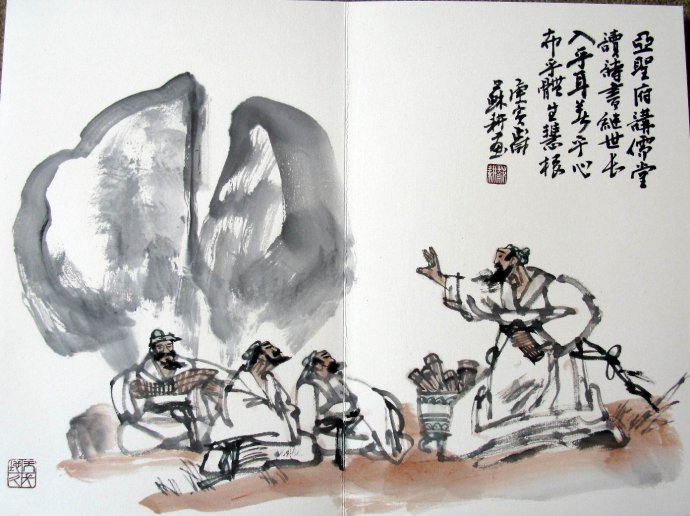 亞聖府講儒堂
讀詩書継世长
入乎耳著乎心
布乎體生慧根
庚寅歲
蘇耕画